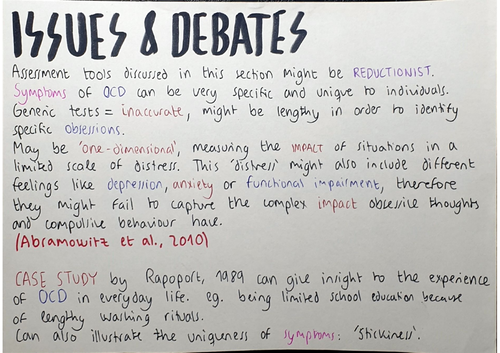 ISSUES & DEBATES
Assessment tools discussed in this section might be REDUCTIONIST.
Symptoms of OCD can be very specific and unique to individuals.
Generic tests = inaccurate, might be lengthy in order to identify
specific obsessions.
May be 'one-dimensional', measuring the IMPACT of situations in a
limited scale of distress. This 'distress' might also include different
feelings like depression, anxiety or functional impairment, therefore
they might fail to capture the complex impact obsessive thoughts
and compulsive behaviour have.
(Abramowitz et al., 2010)
CASE STUDY by Rapoport, 1989 can give insight to the experience
of OCD in everyday life. eg. being limited school education because
of lengthy washing rituals.
Can also illustrate the uniqueness of symptoms: 'stickiness'.